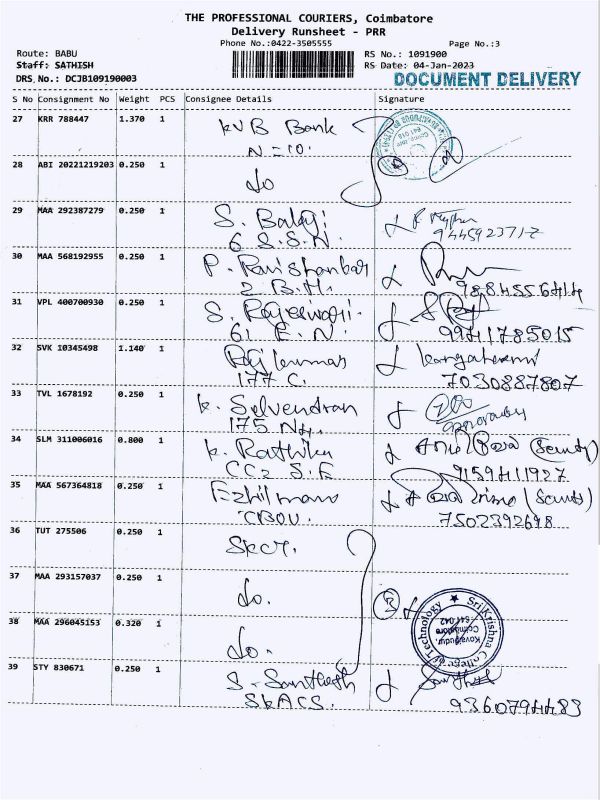 THE PROFESSIONAL COURIERS, Coimbatore
Delivery Runsheet - PRR
Phone No.:0422-3505555
Page No.:3
Route: BABU
RS No.: 1091900
Staff: SATHISH
RS Date: 04-Jan-2023
DRS No.: DCJB109190003
DOCUMENT DELIVERY
S No Consignment No Weight PCS Consignee Details Signature
27 KRR 788447 1.370 1 KVB Bank
N=10.
28 ABI 20221219203 0.250 1 do
29 MAA 292387279 0.250 1 S. Balaji
6 S.S.N.
9445923717
30 MAA 568192955 0.250 1 P. Ravishankar
2 B.H.
9884556414
31 VPL 400700930 0.250 1 S. Rajeswari.
61 E.N.
9941785015
32 SVK 10345498 1.140 1 Rajkumar
177 C.
7030887807
33 TVL 1678192 0.250 1 K. Selvendran
175 N4.
34 SLM 311006016 0.800 1 K. Rathika
(Security)
CC2 S.E
9159411927
35 MAA 567364818 0.250 1 Ezhilmaran
(Security)
CBOU.
7502392698
36 TUT 275506 0.250 1 SKCT.
37 MAA 293157037 0.250 1 do.
3
38 MAA 296045153 0.320 1 do.
Sri Krishna College of Technology
Kovaipudur,
Coimbatore
641 042
39 STY 830671 0.250 1 S. Santhosh
SKACS.
9360794483